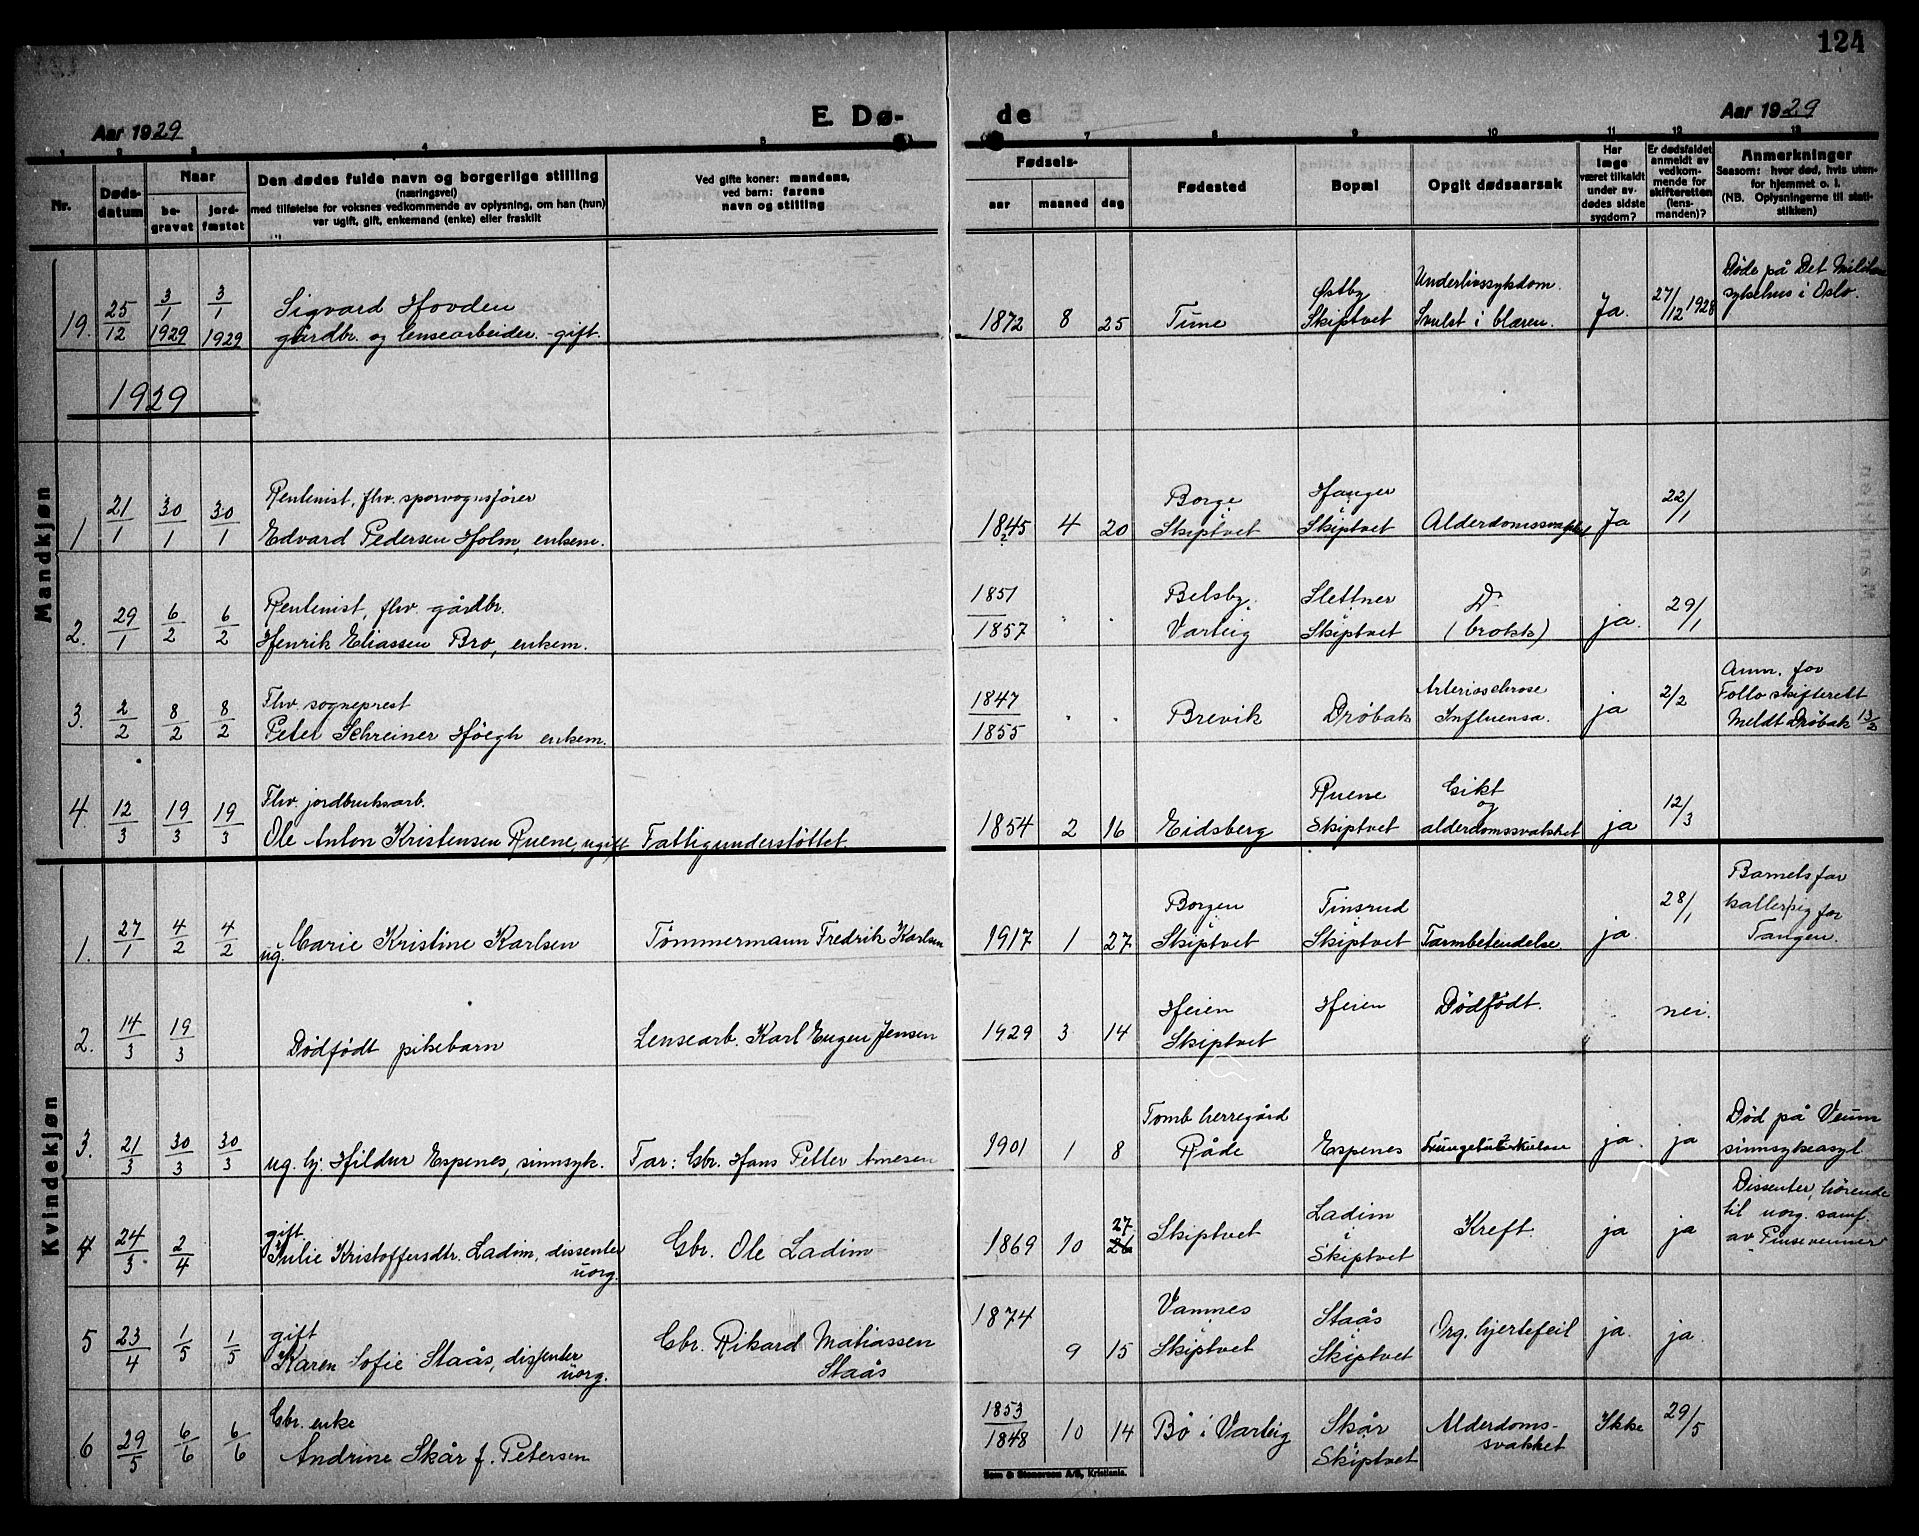 124
E. Dø-
de
Aar 1929
Aar 1929
1 2 3 4 5 7 8 9 10 11 12 13
Nr.
Døds-
datum
Naar
be-
gravet
jord-
fæstet
Den dødes fulde navn og borgerlige stilling
(næringsvei)
med tilføielse for voksnes vedkommende av oplysning, om han (hun)
var ugift, gift, enkemand (enke) eller fraskilt
Ved gifte koner: mandens,
ved børn: farens
navn og stilling
Fødsels-
aar maaned dag
Fødested
Bopæl
Opgit dødsaarsak
Har
læge
været tilkaldt
under av-
dødes sidste
sygdom?
Er dødsfaldet
anmeldt av
vedkom-
mende for
skifteretten
(lens-
manden)?
Anmerkninger
Saasom: hvor død, hvis uten-
for hjemmet o. l.
(NB. Oplysningerne til stati-
stikken)
Mandkjøn
19. 25/12 3/1 1929 3/1 1929 Sigvard Hovden
gårdbr. og lensearbeider. gift.
1872 8 25 Tune
Østby
Skiptvet
Underlivssykdom.
Svulst i blæren.
Ja. 27/12 1928
Døde på Det Militære
sykehus i Oslo.
1929
1 21/1 30/1 30/1 Rentenist, fhv. sporvognsfører
Edvard Pedersen Holm, enkem.
1845 4 20 Borge
i
Skiptvet
Hauger
i
Skiptvet
Alderdomssvakhet Ja 22/1
2. 29/1 6/2 6/2 Rentenist, fhv. gårdbr.
Henrik Eliassen Bro, enkem.
1851
1857 " " Belsby
Varteig
Slettner
i
Skiptvet
Do
(brokk)
ja. 29/1
3. 2/2 8/2 8/2 Fhv. sogneprest
Peter Schreiner Høegh enkem.
1847
1855 " " Brevik Drøbak
Arteriosclerose
Influensa.
ja 2/2
Anm. for
Follo skifterett
Meldt Drøbak 13/2
4. 12/3 19/3 19/3 Fhv. jordbruksarb.
Ole Anton Kristensen Ruene, ugift Fattigunderstøttet
1854 2 16 Eidsberg
Ruene
Skiptvet
Gikt
og
alderdomssvakhet
ja 12/3
Kvindekjøn
1. 27/1 4/2 4/2 ug. Carie Kristine Karlsen
Tømmermann Fredrik Karlsen
1917 1 27 Borgen
i
Skiptvet
Finsrud
i
Skiptvet
Tarmbetendelse ja. 28/1
Barnets far
kaller sig for
Tangen.
2. 14/3 19/3 Dødfødt pikebarn
Lensearb. Karl Eugen Jensen
1929 3 14 Heien
i
Skiptvet
Heien Dødfødt. nei.
3. 21/3 30/3 30/3 ug. hj: Hildur Espenes, sinnsyk.
Far: Gbr. Hans Petter Arnesen
1901 1 8 Tomb herregård
Råde
Espenes Lungetuberkulose ja. ja
Død på Veum
sinnsykeasyl
4 24/3 2/4 gift
Julie Kristoffersdtr. Ladim, dissenter
uorg.
Gbr. Ole Ladim
1869 10 27
26
Skiptvet
Ladim
i
Skiptvet
Kreft. ja ja
Dissenter, hørende
til uorg. samf.
av Pinsevenner
5 23/4 1/5 1/5 gift
Karen Sofie Staås, dissenter
uorg.
Gbr. Rikard Matiassen
Staås
1874 9 15 Vamnes
i
Skiptvet
Staås
i
Skiptvet
Org. hjertefeil ja. ja.
6 29/5 6/6 6/6 Gbr. enke
Andrine Skår f. Petersen
1853
1848 10 14 Bø i Varteig
Skår
i
Skiptvet
Alderdoms-
svakhet
Ikke 29/5
Sem & Stenersen A/S, Kristiania.